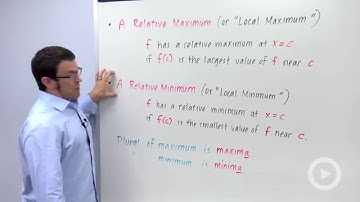 • A Relative Maximum (or "Local Maximum")
f has a relative maximum at x=c
if f(c) is the largest value of f near c.
A Relative Minimum (or "Local Minimum")
f has a relative minimum at x=c
if f(c) is the smallest value of f near c.
Plural of maximum is maxima
" minimum is minima